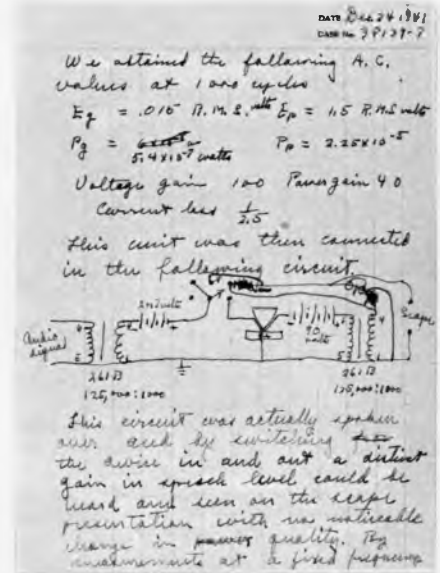 DATE Dec 24 1941
CASE No. 38139-7
We attained the following A.C.
values at 1000 cycles
Eg = .015 R.M.S. volts Ep = 1.5 R.M.S. volts
Pg = 5.4 x 10⁻⁷ watts Pp = 2.25 x 10⁻⁵
Voltage gain 100 Power gain 40
Current loss 1/2.5
This unit was then connected
in the following circuit
Audio signal
261B
125,000:1000
90 volts
Scope
261B
125,000:1000
This circuit was actually spoken
over and by switching
the device in and out a distinct
gain in speech level could be
heard and seen on the scope
presentation with no noticeable
change in quality. By
measurements at a fixed frequency